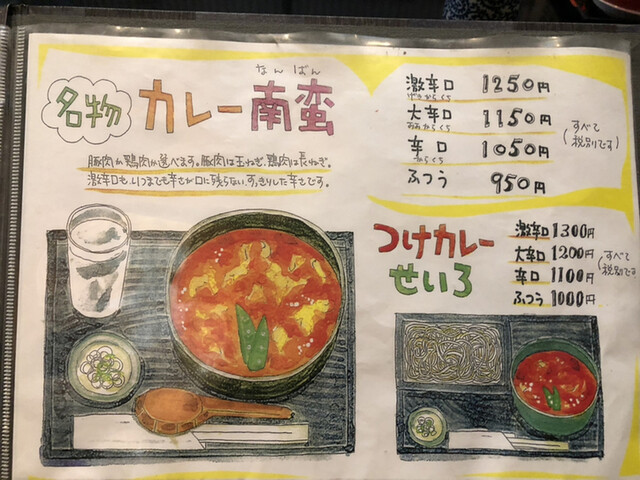 名物
なんばん
カレー南蛮
豚肉か鶏肉が選べます。豚肉は玉ねぎ、鶏肉は長ねぎ。
激辛口も、いつまでも辛さが口に残らない、すっきりした辛さです。
激辛口 1250円
げきからくち
大辛口 1150円
おおからくち
辛口 1050円
からくち
ふつう 950円
(すべて
税別です)
つけカレー
せいろ
激辛口 1300円
大辛口 1200円
辛口 1100円
ふつう 1000円
(すべて
税別です